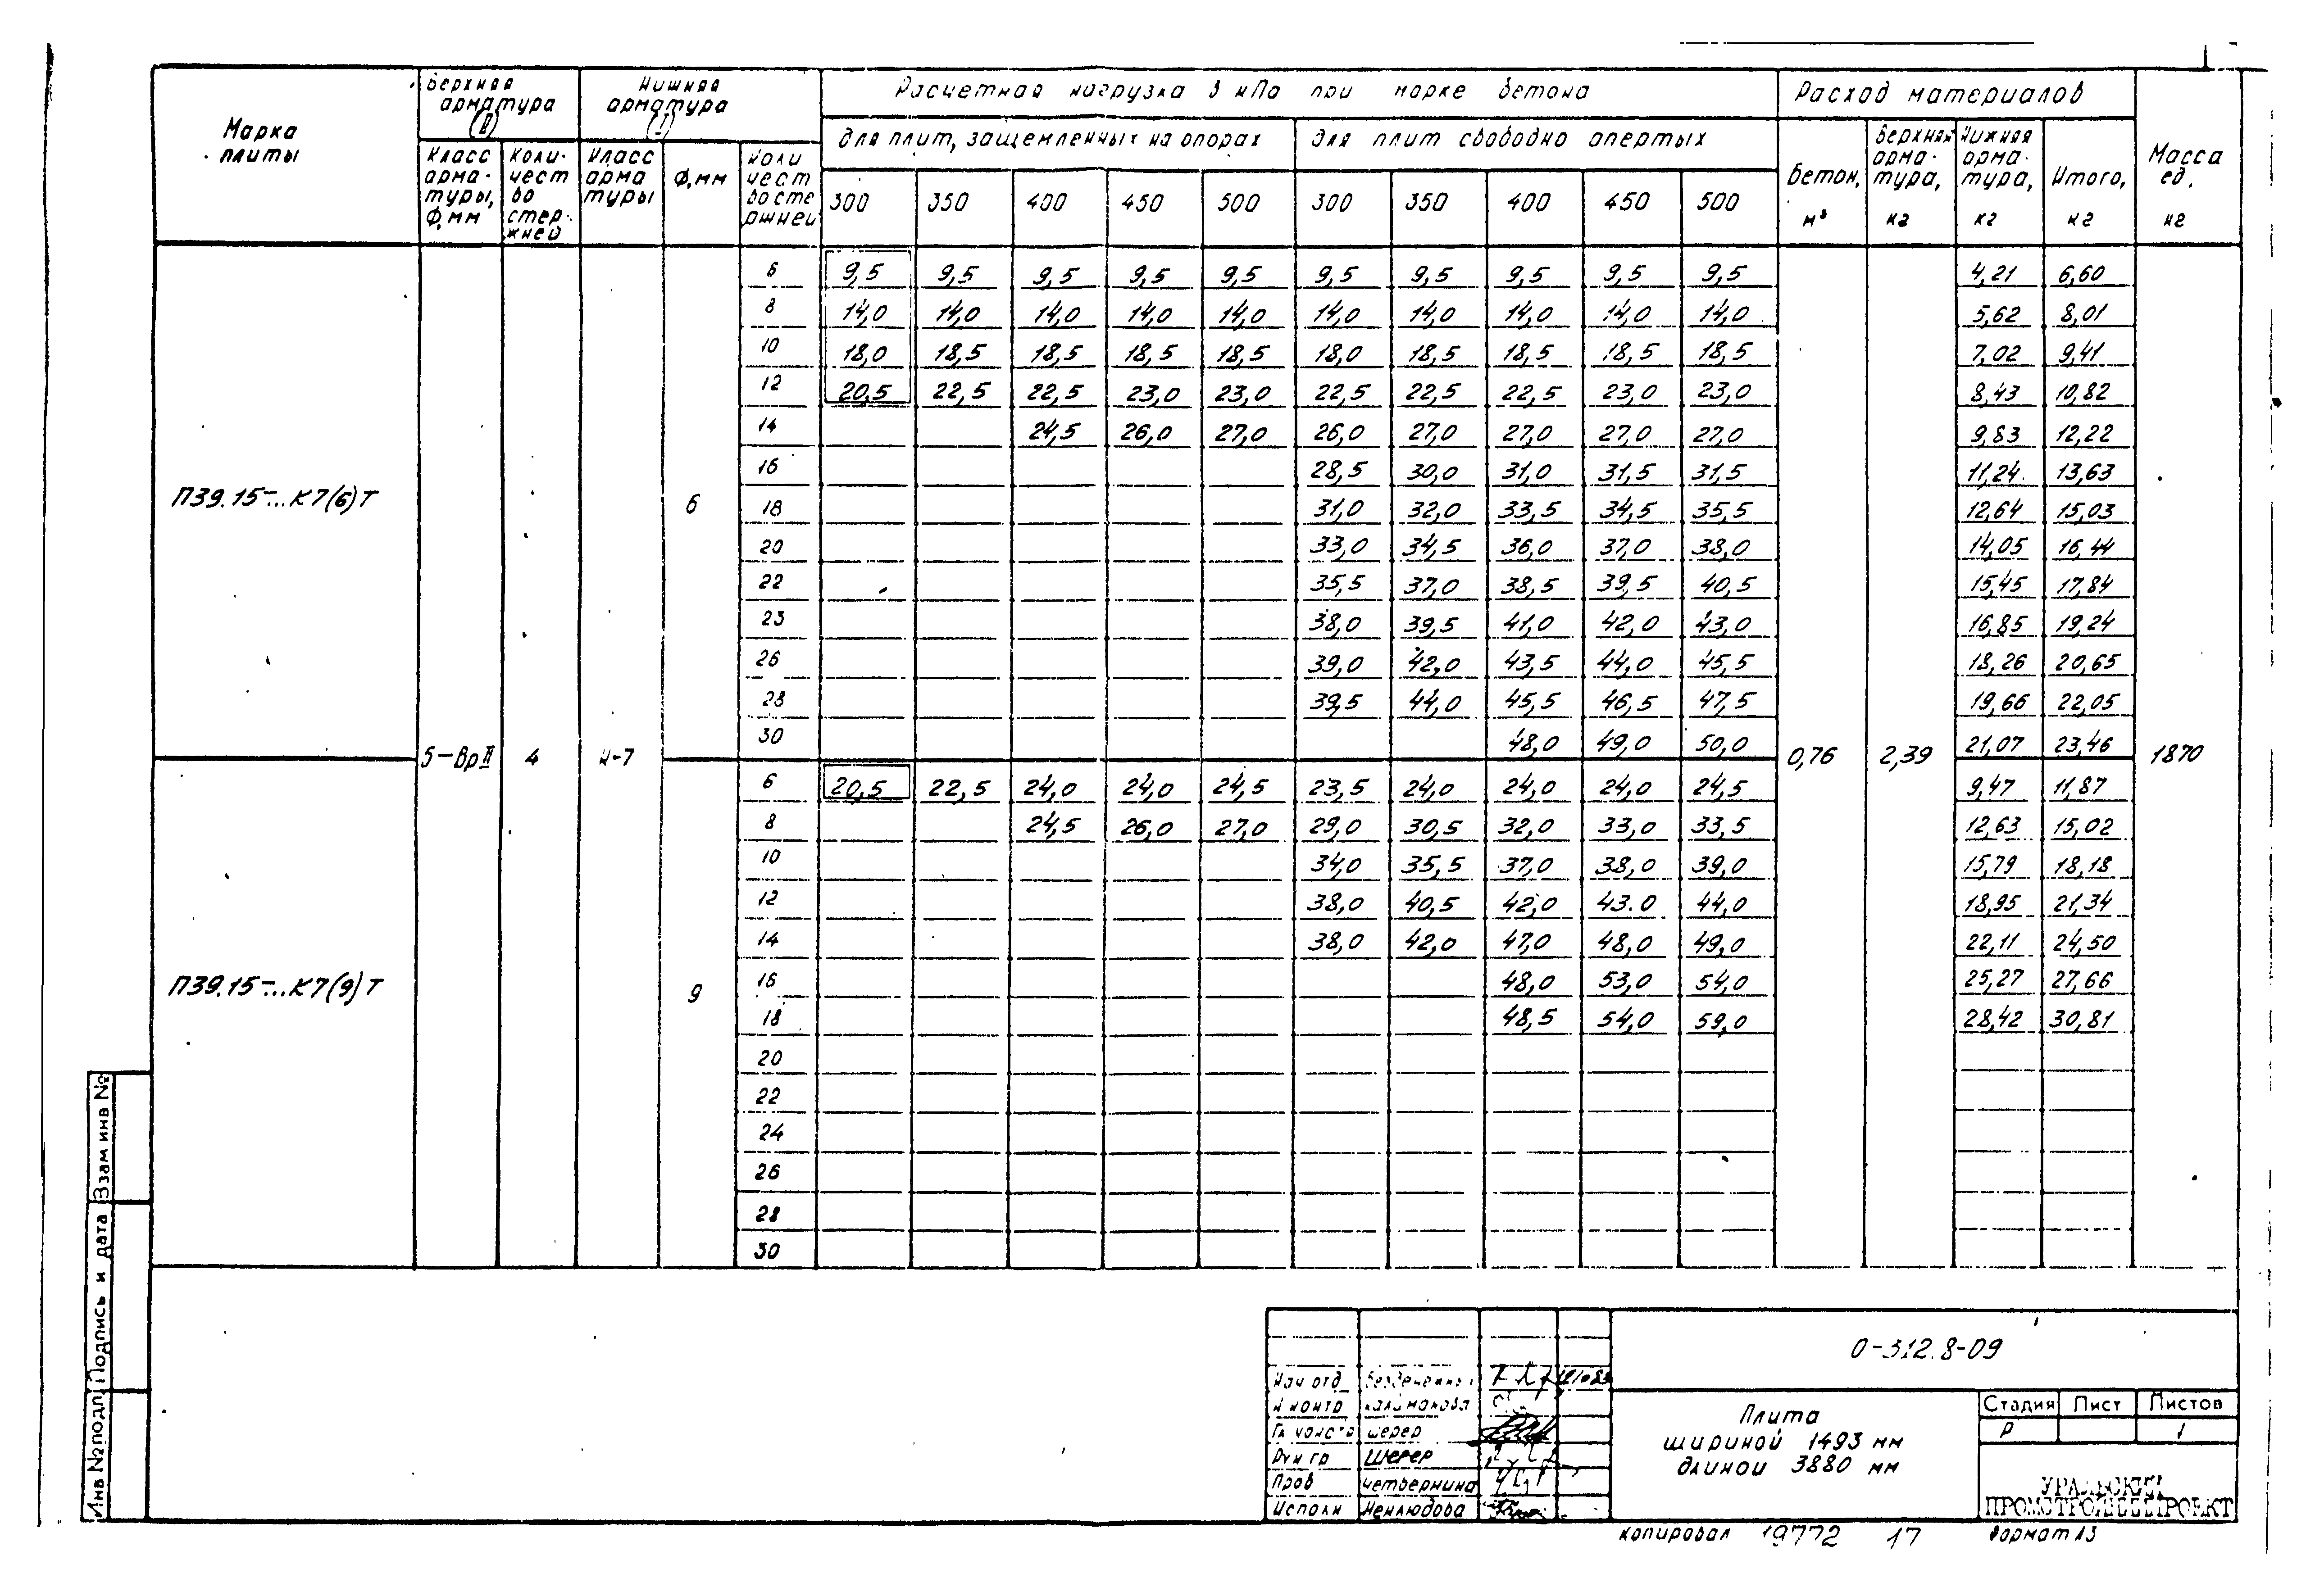 Марка плиты
Верхняя арматура (II)
Нижняя арматура (I)
Расчетная нагрузка в кПа при марке бетона
Расход материалов
Масса ед. кг
для плит, защемленных на опорах
для плит свободно опертых
Класс арма-туры, Ф,мм
Коли-чест во стер-жней
Класс арма туры
Ф,мм
Коли чест во сте ржней
300 350 400 450 500 300 350 400 450 500
Бетон, м³
Верхняя арма-тура, кг
Нижняя арма-тура, кг
Итого, кг
6 9,5 9,5 9,5 9,5 9,5 9,5 9,5 9,5 9,5 9,5 4,21 6,60
8 14,0 14,0 14,0 14,0 14,0 14,0 14,0 14,0 14,0 14,0 5,62 8,01
10 18,0 18,5 18,5 18,5 18,5 18,0 18,5 18,5 18,5 18,5 7,02 9,41
12 20,5 22,5 22,5 23,0 23,0 22,5 22,5 22,5 23,0 23,0 8,43 10,82
14 24,5 26,0 27,0 26,0 27,0 27,0 27,0 27,0 9,83 12,22
16 28,5 30,0 31,0 31,5 31,5 11,24 13,63
П39.15-...К7(6)Т 6 18 31,0 32,0 33,5 34,5 35,5 12,64 15,03
20 33,0 34,5 36,0 37,0 38,0 14,05 16,44
22 35,5 37,0 38,5 39,5 40,5 15,45 17,84
23 38,0 39,5 41,0 42,0 43,0 16,85 19,24
26 39,0 42,0 43,5 44,0 45,5 18,26 20,65
28 39,5 44,0 45,5 46,5 47,5 19,66 22,05
30 48,0 49,0 50,0 21,07 23,46
5-ВрII 4 К-7 0,76 2,39 1870
6 20,5 22,5 24,0 24,0 24,5 23,5 24,0 24,0 24,0 24,5 9,47 11,87
8 24,5 26,0 27,0 29,0 30,5 32,0 33,0 33,5 12,63 15,02
10 34,0 35,5 37,0 38,0 39,0 15,79 18,18
12 38,0 40,5 42,0 43.0 44,0 18,95 21,34
14 38,0 42,0 47,0 48,0 49,0 22,11 24,50
П39.15-...К7(9)Т 9 16 48,0 53,0 54,0 25,27 27,66
18 48,5 54,0 59,0 28,42 30,81
20
22
24
26
28
30
Взам инв №
Подпись и дата
Инв № подл
0-312.8-09
Нач отд
Н контр
Гл констр Шерер
Рук гр Шерер
Пров Четверкина
Исполн Неклюдова
Плита
шириной 1493 мм
длиной 3880 мм
Стадия Лист Листов
Р 1
УРАЛЬСКИЙ
ПРОМСТРОЙНИИПРОЕКТ
копировал 19772 17 Формат А3